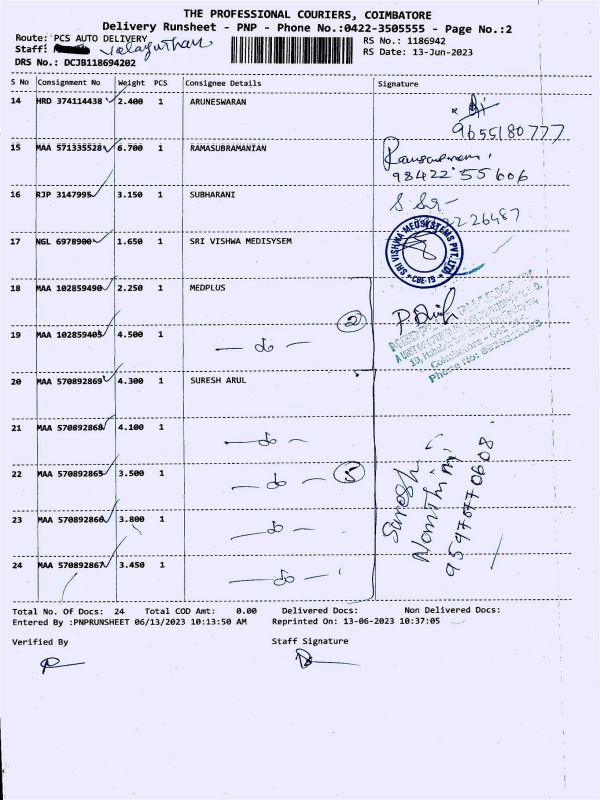 THE PROFESSIONAL COURIERS, COIMBATORE
Delivery Runsheet - PNP - Phone No.:0422-3505555 - Page No.:2
Route: PCS AUTO DELIVERY
RS No.: 1186942
Staff:
RS Date: 13-Jun-2023
DRS No.: DCJB118694202
S No Consignment No Weight PCS Consignee Details Signature
14 HRD 374114438 2.400 1 ARUNESWARAN
9655180777
15 MAA 571335528 6.700 1 RAMASUBRAMANIAN
98422 55606
16 RJP 3147995 3.150 1 SUBHARANI
26487
17 NGL 6978900 1.650 1 SRI VISHWA MEDISYSEM
SRI VISHWA MEDSYSTEMS PVT. LTD. CBE-19
18 MAA 102859490 2.250 1 MEDPLUS
2
19 MAA 102859403 4.500 1 - do -
20 MAA 570892869 4.300 1 SURESH ARUL
21 MAA 570892868 4.100 1 - do -
22 MAA 570892865 3.500 1 - do - 5
Suresh
95970770608
23 MAA 570892866 3.800 1 - do -
24 MAA 570892867 3.450 1 - do -
Total No. Of Docs: 24 Total COD Amt: 0.00 Delivered Docs: Non Delivered Docs:
Entered By :PNPRUNSHEET 06/13/2023 10:13:50 AM Reprinted On: 13-06-2023 10:37:05
Verified By Staff Signature